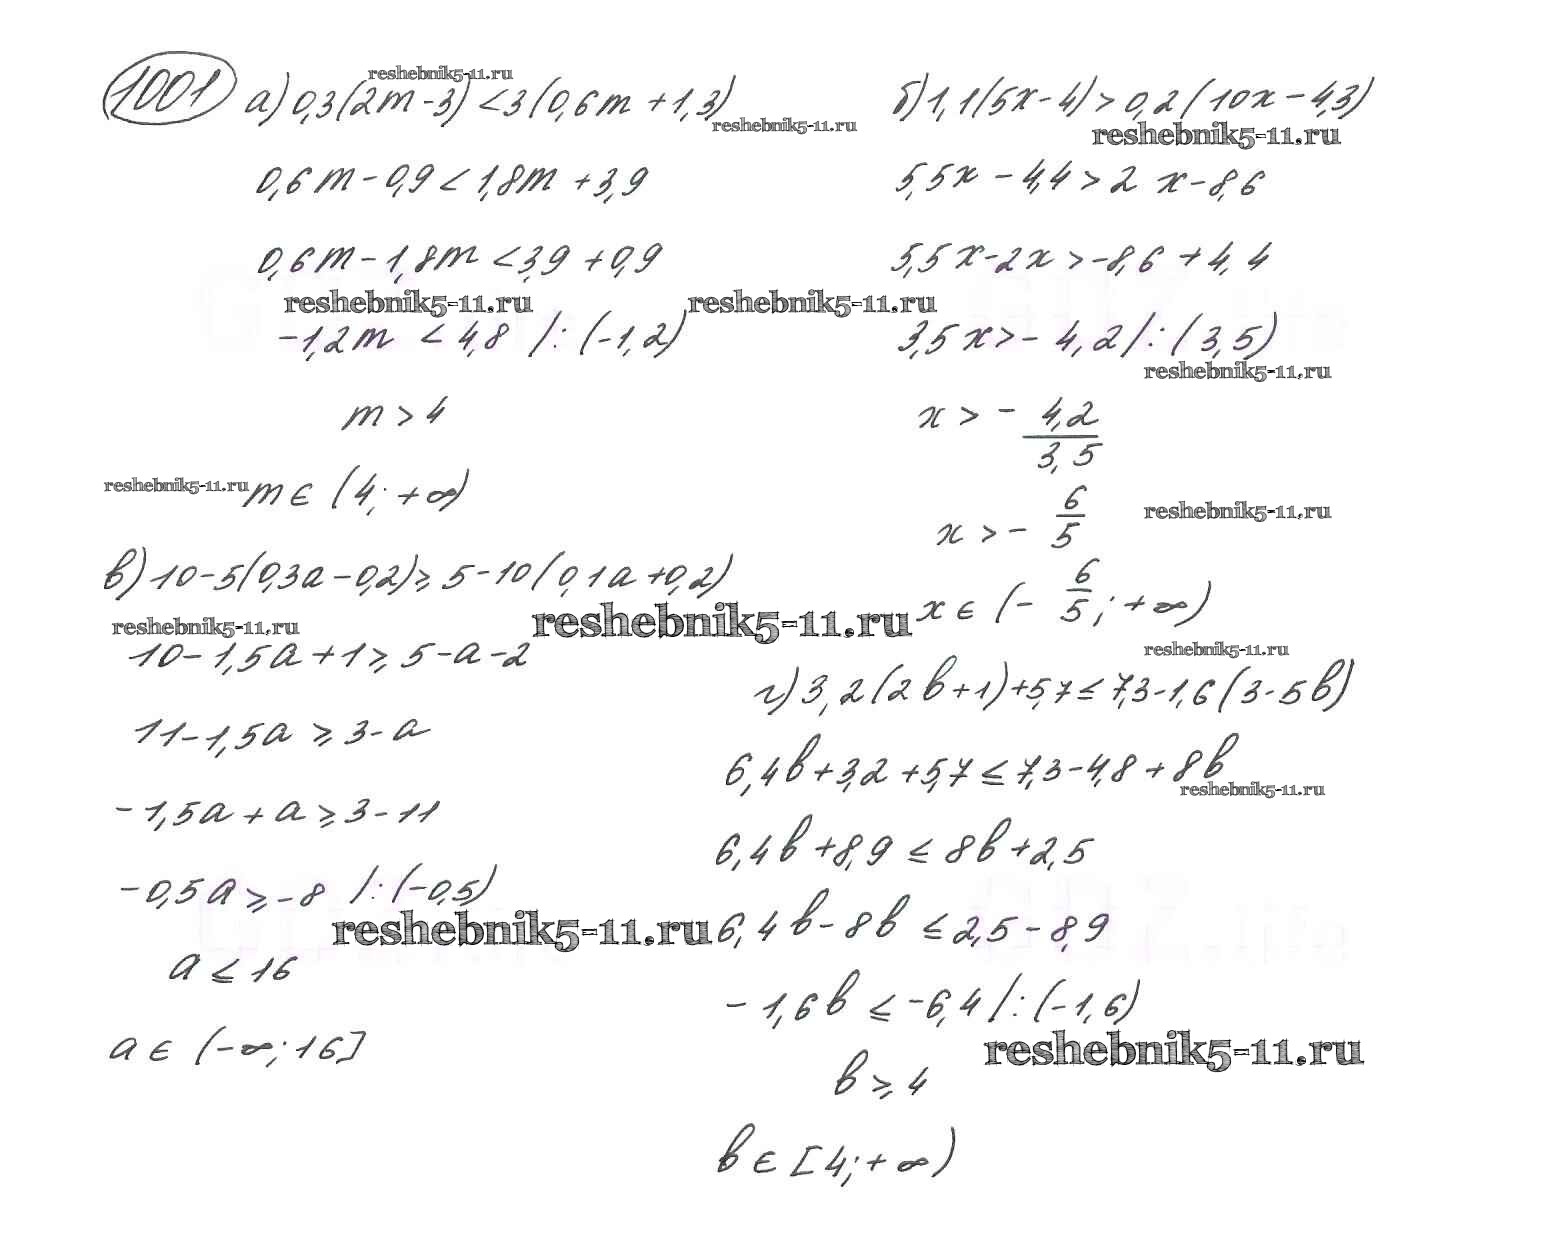 1001 а) 0,3(2m-3) < 3(0,6m + 1,3)
0,6m - 0,9 < 1,8m + 3,9
0,6m - 1,8m < 3,9 + 0,9
-1,2m < 4,8 /: (-1,2)
m > 4
m ∈ (4; +∞)
б) 1,1(5x-4) > 0,2(10x-4,3)
5,5x - 4,4 > 2x - 8,6
5,5x - 2x > -8,6 + 4,4
3,5x > -4,2 /: (3,5)
x > - 4,2/3,5
x > - 6/5
x ∈ (- 6/5; +∞)
в) 10-5(0,3a-0,2) ⩾ 5-10(0,1a+0,2)
10-1,5a+1 ⩾ 5-a-2
11-1,5a ⩾ 3-a
-1,5a + a ⩾ 3-11
-0,5a ⩾ -8 /: (-0,5)
a ⩽ 16
a ∈ (-∞; 16]
г) 3,2(2b+1)+5,7 ⩽ 7,3-1,6(3-5b)
6,4b+3,2+5,7 ⩽ 7,3-4,8+8b
6,4b+8,9 ⩽ 8b+2,5
6,4b-8b ⩽ 2,5-8,9
-1,6b ⩽ -6,4 /: (-1,6)
b ⩾ 4
b ∈ [4; +∞)
reshebnik5-11.ru
reshebnik5-11.ru
reshebnik5-11.ru
reshebnik5-11.ru
reshebnik5-11.ru
reshebnik5-11.ru
reshebnik5-11.ru
reshebnik5-11.ru
reshebnik5-11.ru
reshebnik5-11.ru
reshebnik5-11.ru
reshebnik5-11.ru
reshebnik5-11.ru
reshebnik5-11.ru